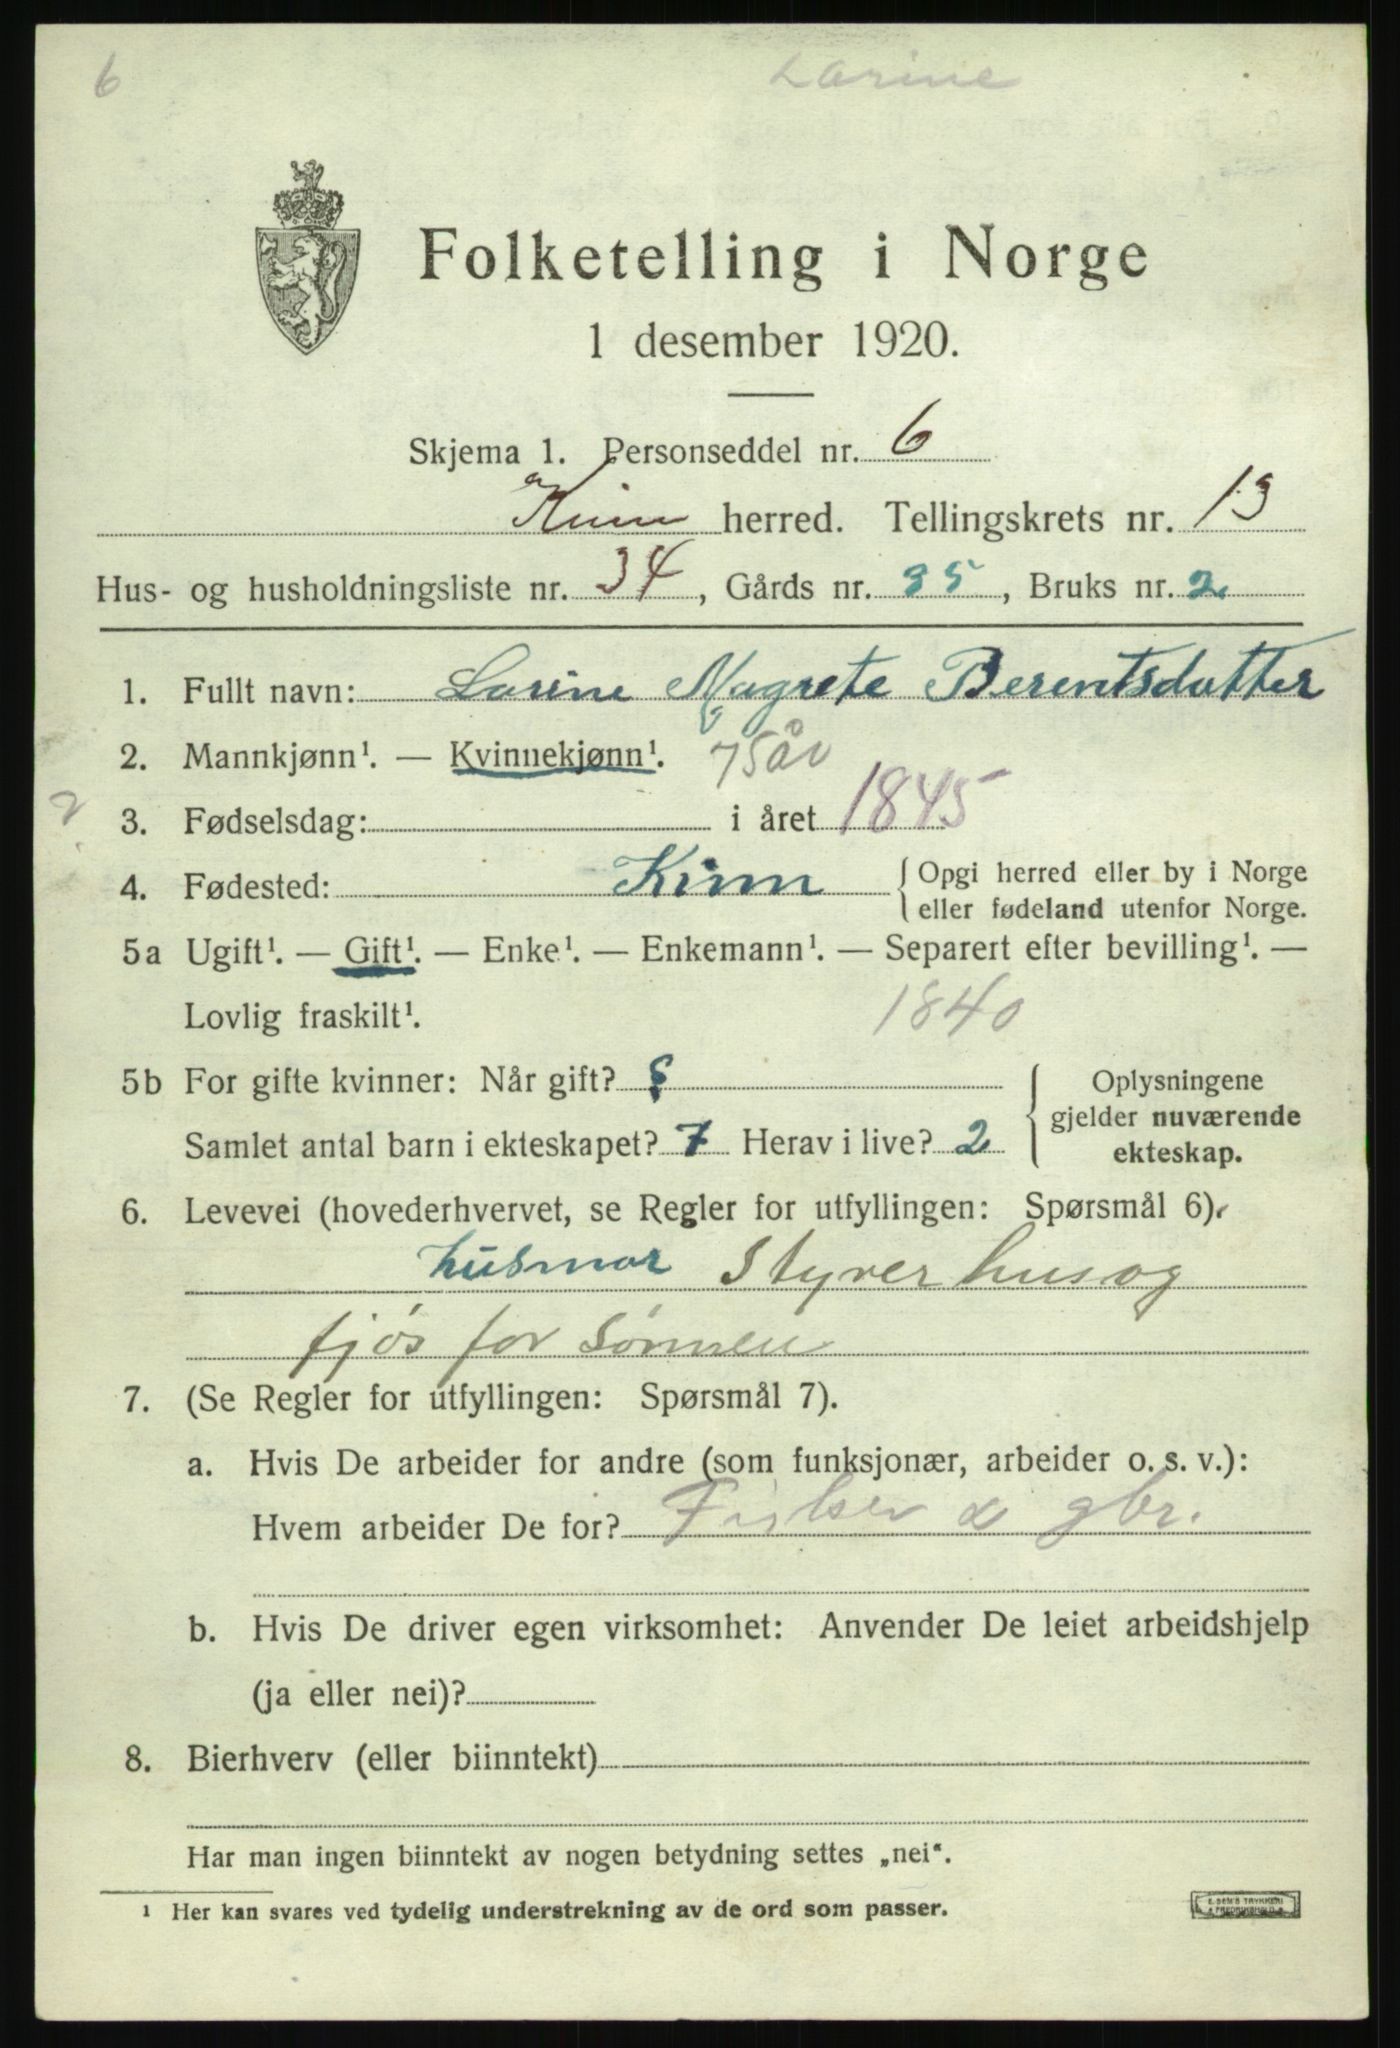 6 Larine
Folketelling i Norge
1 desember 1920.
Skjema 1. Personseddel nr. 6
Kinn herred. Tellingskrets nr. 13
Hus- og husholdningsliste nr. 34, Gårds nr. 35, Bruks nr. 2
1. Fullt navn: Larine Magrete Berentsdatter
2. Mannkjønn¹. — Kvinnekjønn¹. 75 år
3. Fødselsdag: i året 1845
4. Fødested: Kinn { Opgi herred eller by i Norge
eller fødeland utenfor Norge.
5a Ugift¹. — Gift¹. — Enke¹. — Enkemann¹. — Separert efter bevilling¹. —
Lovlig fraskilt¹. 1840
5b For gifte kvinner: Når gift? ?
Samlet antal barn i ekteskapet? 7 Herav i live? 2
Oplysningene
gjelder nuværende
ekteskap.
6. Levevei (hovederhvervet, se Regler for utfyllingen: Spørsmål 6).
husmor Styrer hus og
fjøs for Sønnen
7. (Se Regler for utfyllingen: Spørsmål 7).
a. Hvis De arbeider for andre (som funksjonær, arbeider o. s. v.):
Hvem arbeider De for? gbr.
b. Hvis De driver egen virksomhet: Anvender De leiet arbeidshjelp
(ja eller nei)?
8. Bierhverv (eller biinntekt)
Har man ingen biinntekt av nogen betydning settes „nei“.
¹ Her kan svares ved tydelig understrekning av de ord som passer.